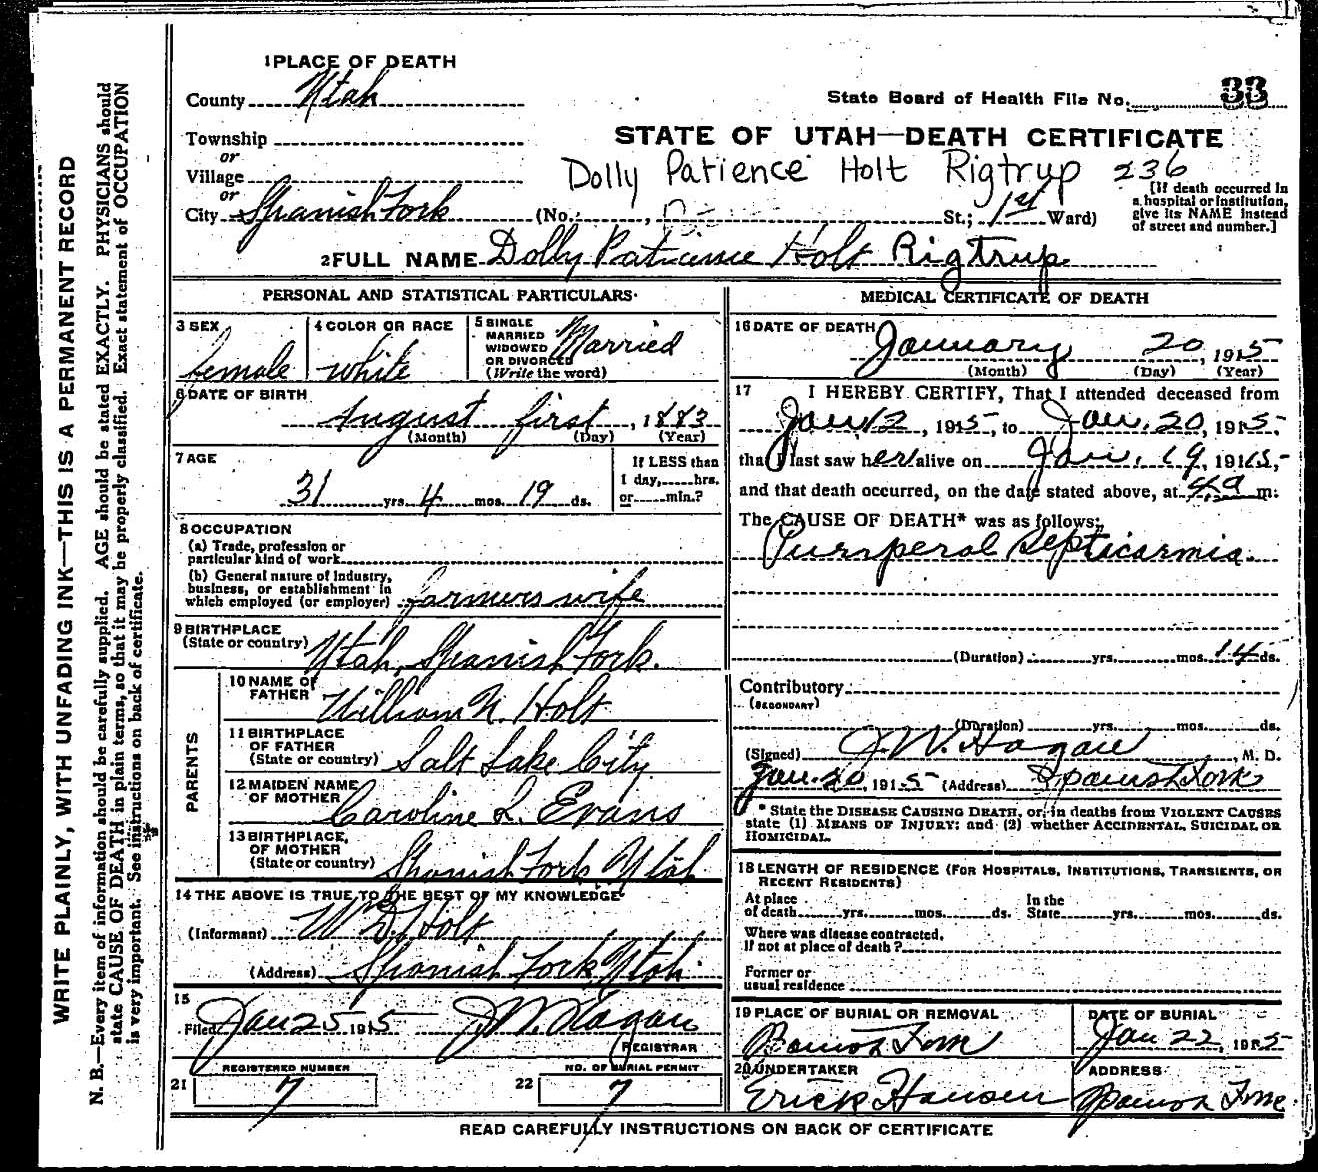 1 PLACE OF DEATH
County Utah
State Board of Health File No. 33
Township
or
Village
or
City Spanish Fork
STATE OF UTAH—DEATH CERTIFICATE
Dolly Patience Holt Rigtrup 236
(No. St.; 1st Ward)
[If death occurred in
a hospital or institution,
give its NAME instead
of street and number.]
2 FULL NAME Dolly Patience Holt Rigtrup
PERSONAL AND STATISTICAL PARTICULARS
3 SEX female
4 COLOR OR RACE white
5 SINGLE
MARRIED
WIDOWED
OR DIVORCED
(Write the word)
Married
6 DATE OF BIRTH
August first, 1883
(Month) (Day) (Year)
7 AGE
31 yrs. 4 mos. 19 ds.
If LESS than
1 day, hrs.
or min.?
8 OCCUPATION
(a) Trade, profession or
particular kind of work
(b) General nature of industry,
business, or establishment in
which employed (or employer) farmers wife
9 BIRTHPLACE
(State or country) Utah, Spanish Fork.
PARENTS
10 NAME OF
FATHER William N. Holt
11 BIRTHPLACE
OF FATHER
(State or country) Salt Lake City
12 MAIDEN NAME
OF MOTHER Caroline L. Evans
13 BIRTHPLACE
OF MOTHER
(State or country) Spanish Fork Utah
14 THE ABOVE IS TRUE TO THE BEST OF MY KNOWLEDGE
(Informant) Wm D. Holt
(Address) Spanish Fork, Utah
15
Filed Jan 25 1915 J. W. Hagan
REGISTRAR
21 REGISTERED NUMBER
7
22 NO. OF BURIAL PERMIT
7
MEDICAL CERTIFICATE OF DEATH
16 DATE OF DEATH
January 20, 1915
(Month) (Day) (Year)
17 I HEREBY CERTIFY, That I attended deceased from
Jan 12, 1915, to Jan. 20, 1915,
that I last saw her alive on Jan. 19, 1915,
and that death occurred, on the date stated above, at m.
The CAUSE OF DEATH* was as follows:
Purrperal Septicarmia.
(Duration) yrs. mos. 14 ds.
Contributory
(SECONDARY)
(Duration) yrs. mos. ds.
(Signed) J. W. Hagan, M. D.
Jan. 20, 1915 (Address) Spanish Fork
* State the DISEASE CAUSING DEATH, or, in deaths from VIOLENT CAUSES
state (1) MEANS OF INJURY; and (2) whether ACCIDENTAL, SUICIDAL OR
HOMICIDAL.
18 LENGTH OF RESIDENCE (FOR HOSPITALS, INSTITUTIONS, TRANSIENTS, OR
RECENT RESIDENTS)
At place
of death yrs. mos. ds.
In the
State yrs. mos. ds.
Where was disease contracted,
if not at place of death?
Former or
usual residence
19 PLACE OF BURIAL OR REMOVAL
Spanish Fork
DATE OF BURIAL
Jan 22, 1915
20 UNDERTAKER
Erick Hansen
ADDRESS
Spanish Fork
READ CAREFULLY INSTRUCTIONS ON BACK OF CERTIFICATE
WRITE PLAINLY, WITH UNFADING INK—THIS IS A PERMANENT RECORD
N. B.—Every item of information should be carefully supplied. AGE should be stated EXACTLY. PHYSICIANS should
state CAUSE OF DEATH in plain terms, so that it may be properly classified. Exact statement of OCCUPATION
is very important. See instructions on back of certificate.